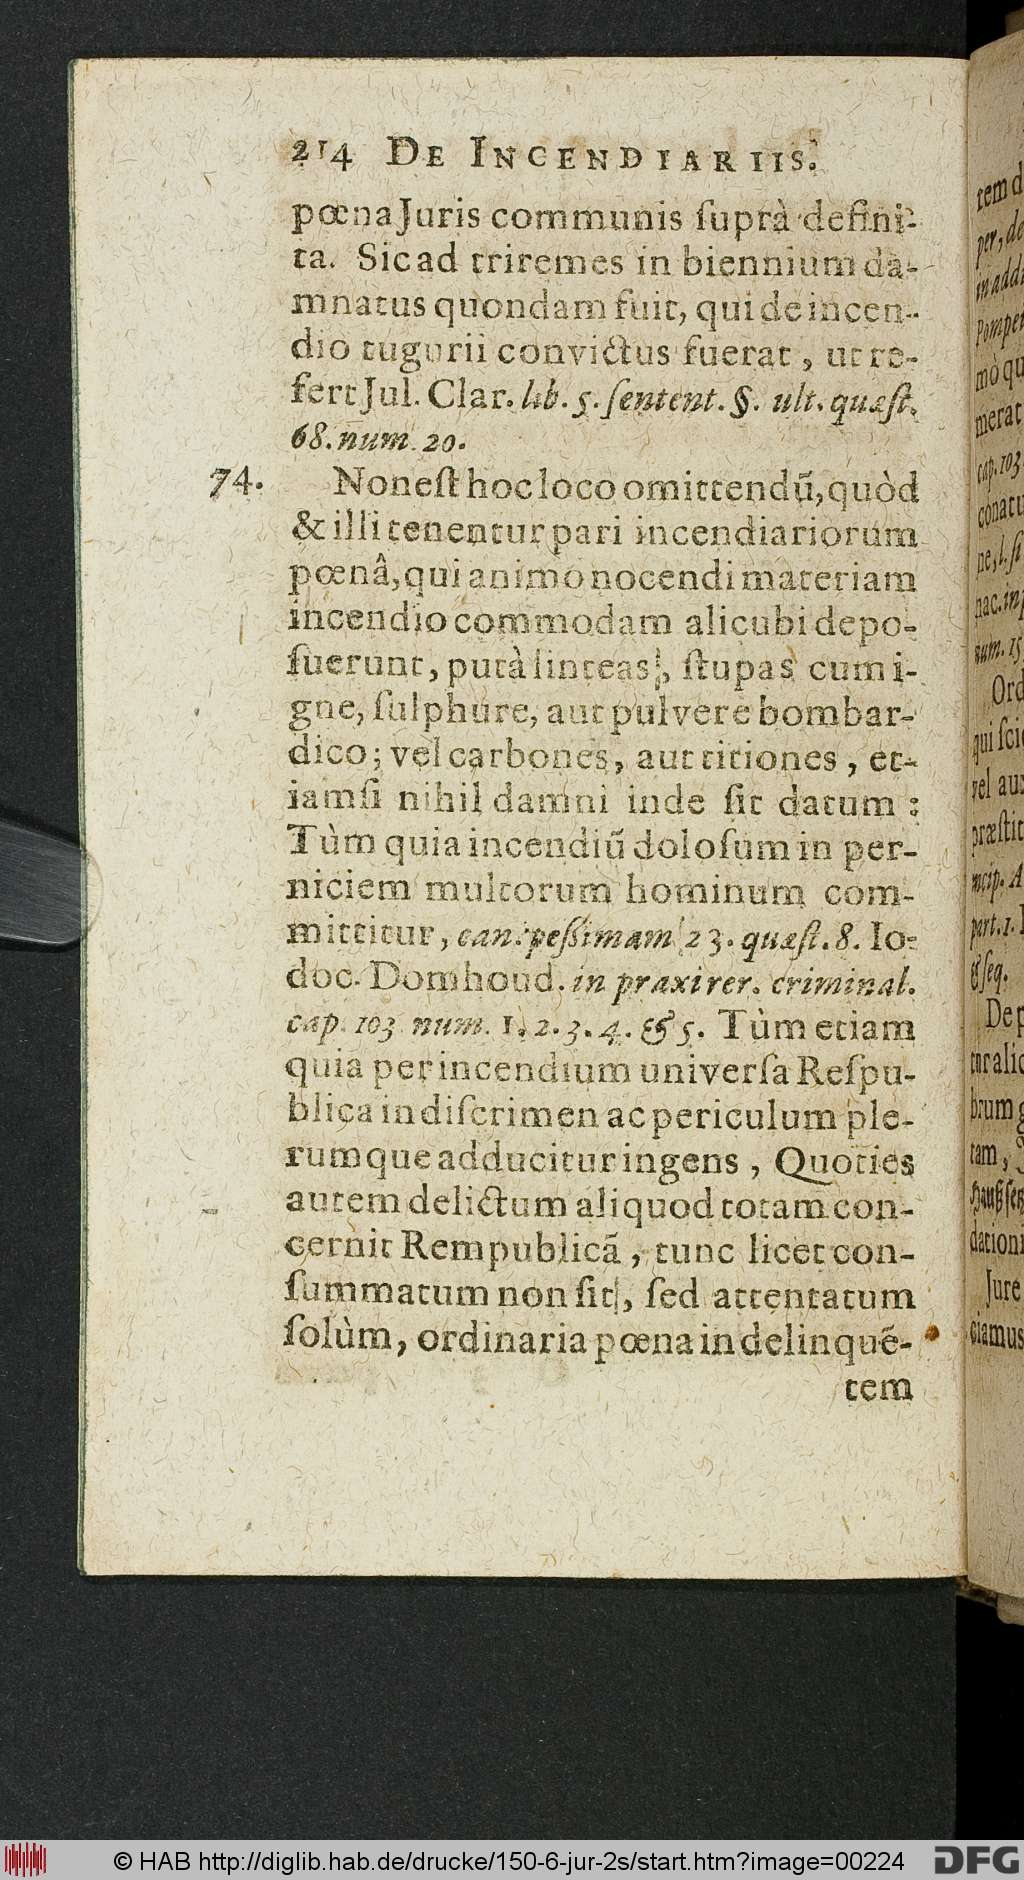 214 DE INCENDIARIIS.
pœna Juris communis ſuprà defini-
ta. Sic ad triremes in biennium da-
mnatus quondam fuit, qui de incen-
dio tugurii convictus fuerat, ut re-
fert Jul. Clar. lib. 5. ſentent. §. ult. quæſt.
68. num. 20.
74. Non eſt hoc loco omittendũ, quòd
& illi tenentur pari incendiariorum
pœnâ, qui animo nocendi materiam
incendio commodam alicubi depo-
ſuerunt, putà linteas, ſtupas cum i-
gne, ſulphure, aut pulvere bombar-
dico; vel carbones, aut titiones, et-
iamſi nihil damni inde ſit datum:
Tùm quia incendiũ doloſum in per-
niciem multorum hominum com-
mittitur, can. peſſimam 23. quæſt. 8. Io-
doc. Domhoud. in praxi rer. criminal.
cap. 103 num. 1. 2. 3. 4. & 5. Tùm etiam
quia per incendium univerſa Reſpu-
blica in diſcrimen ac periculum ple-
rumque adducitur ingens, Quoties
autem delictum aliquod totam con-
cernit Rempublicã, tunc licet con-
ſummatum non ſit, ſed attentatum
ſolùm, ordinaria pœna in delinquẽ-
tem
tem d
per, de
in addi
Pompei
mò qu
merat
cap. 103
conatu
ne, l. ſi
hac. in p
num. 15
Ord
qui ſcie
vel aux
præſtit
ncip. A
part. 1.
& ſeq.
Dep
tur alic
brum g
tam,
dationi
Jure
ciamus
© HAB http://diglib.hab.de/drucke/150-6-jur-2s/start.htm?image=00224
DFG